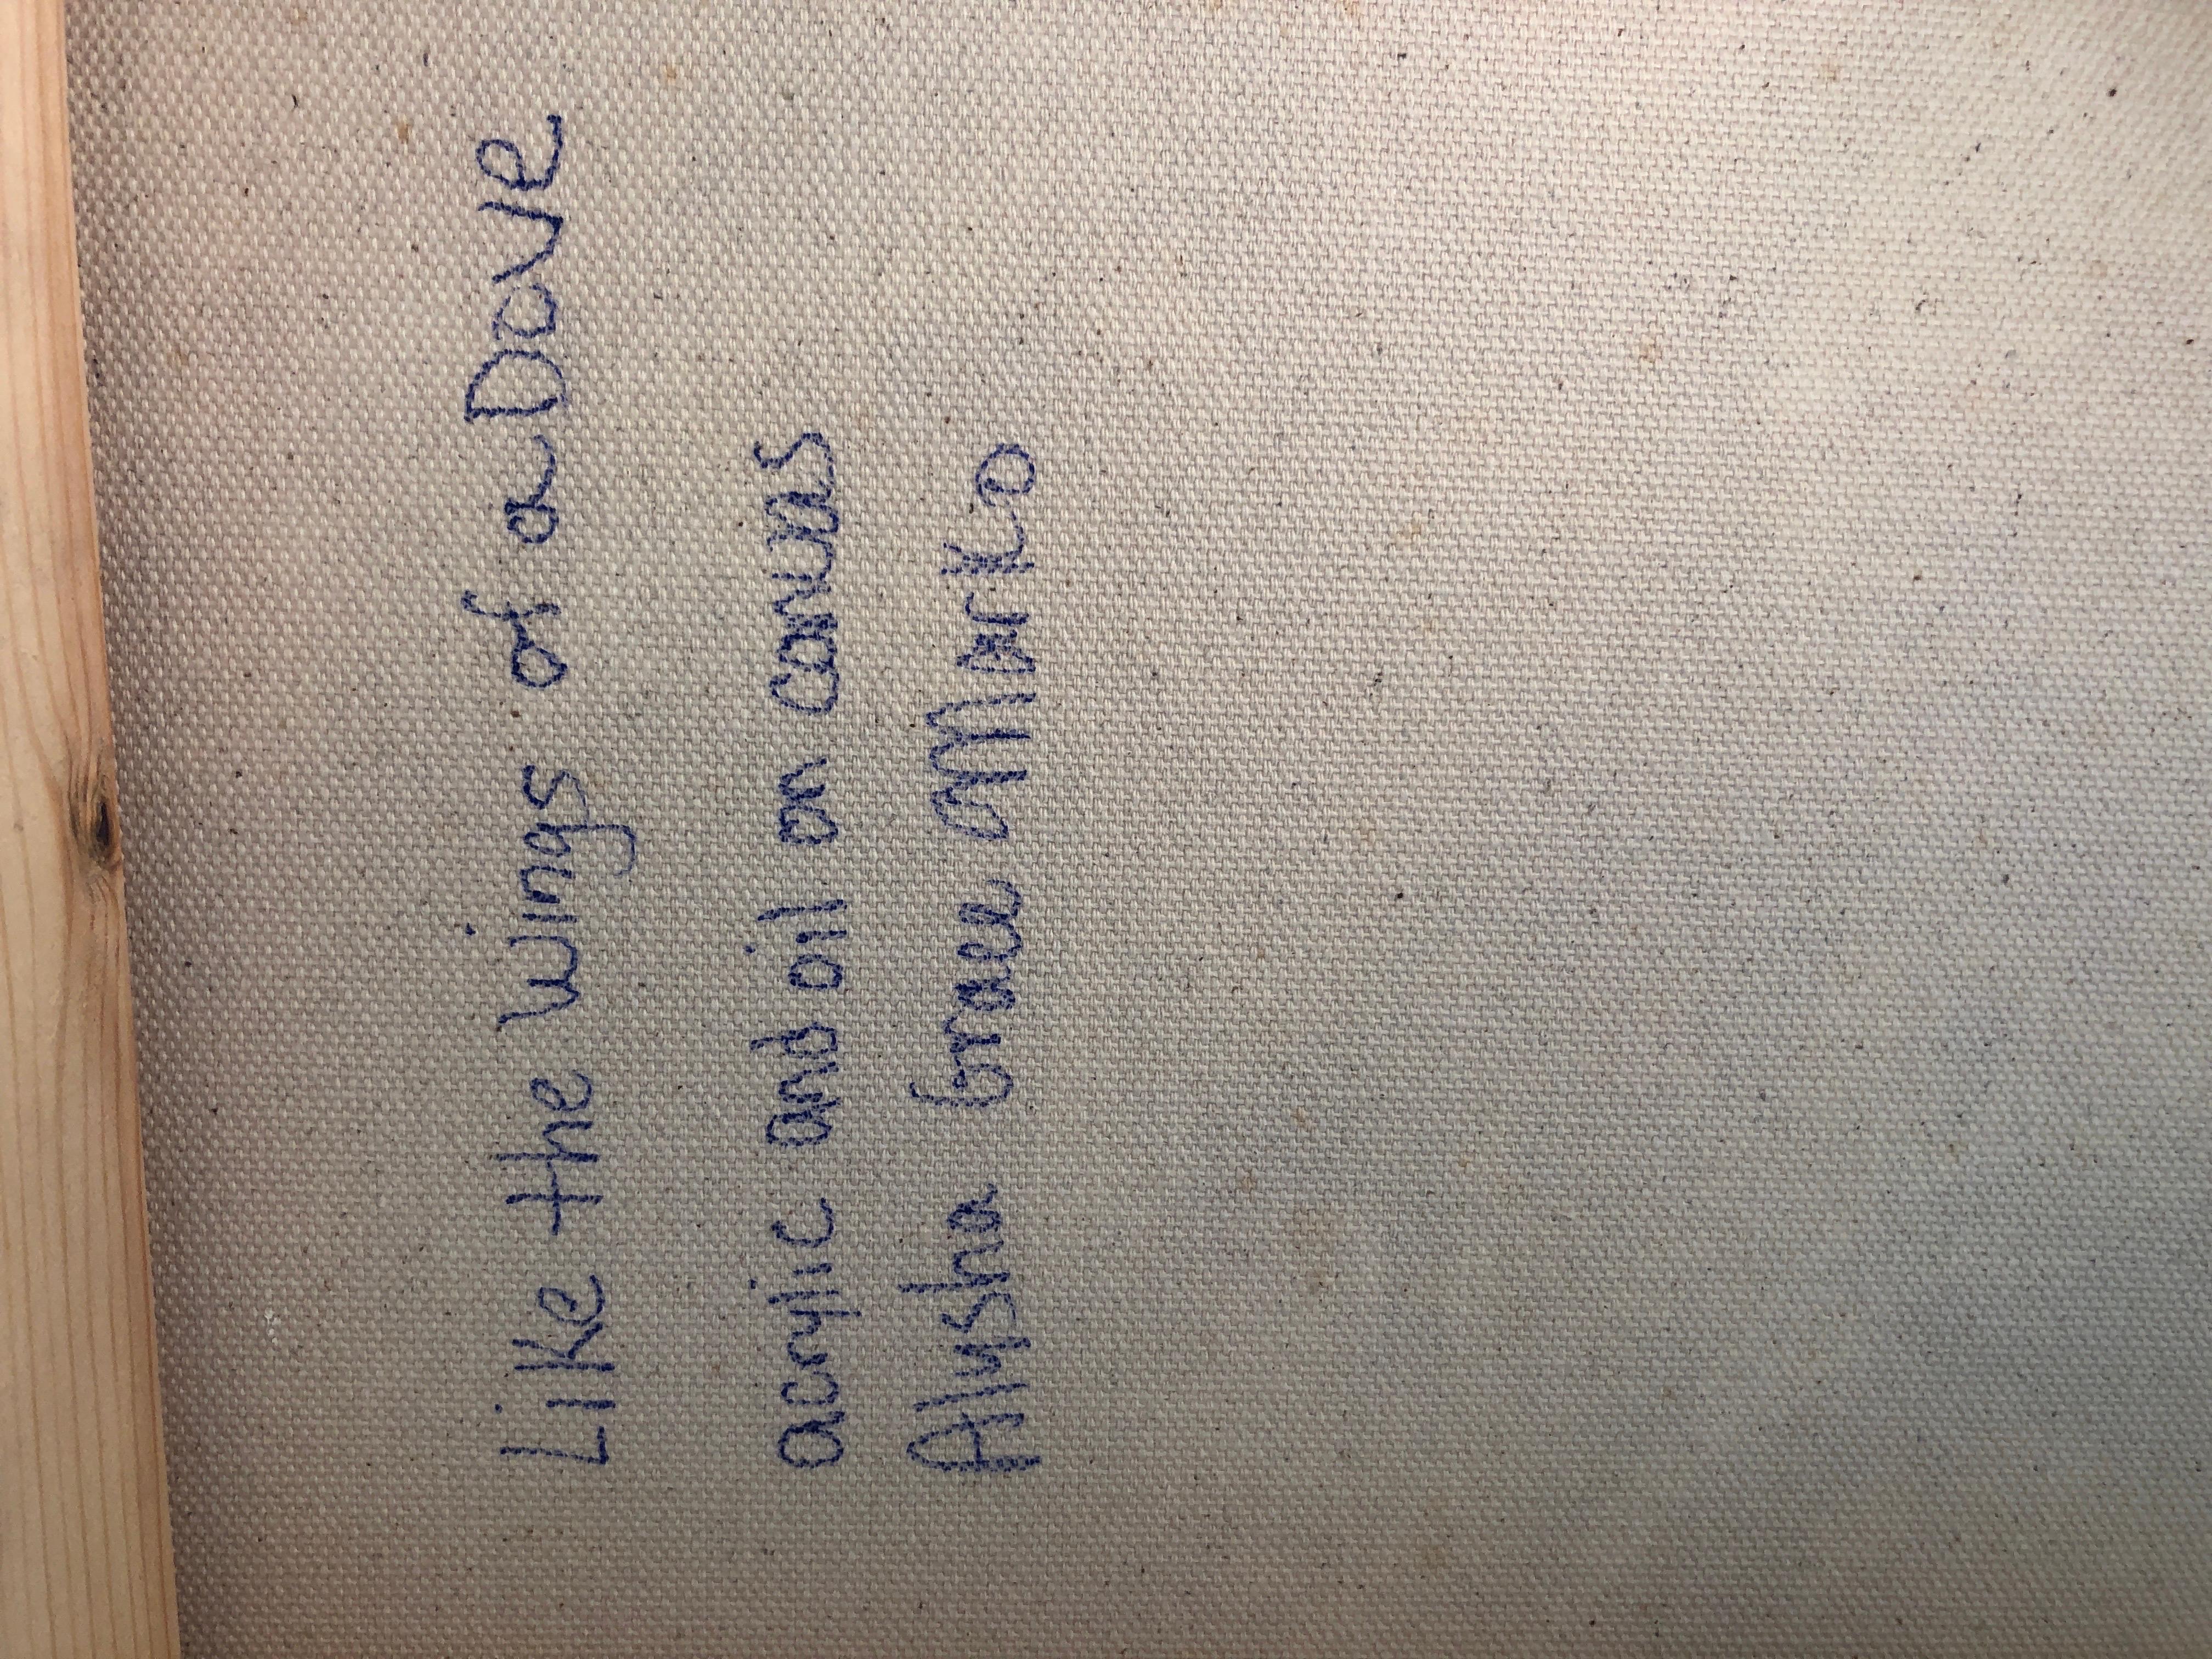 Like the wings of a Dove
acrylic and oil on canvas
Alysha Grace Marko